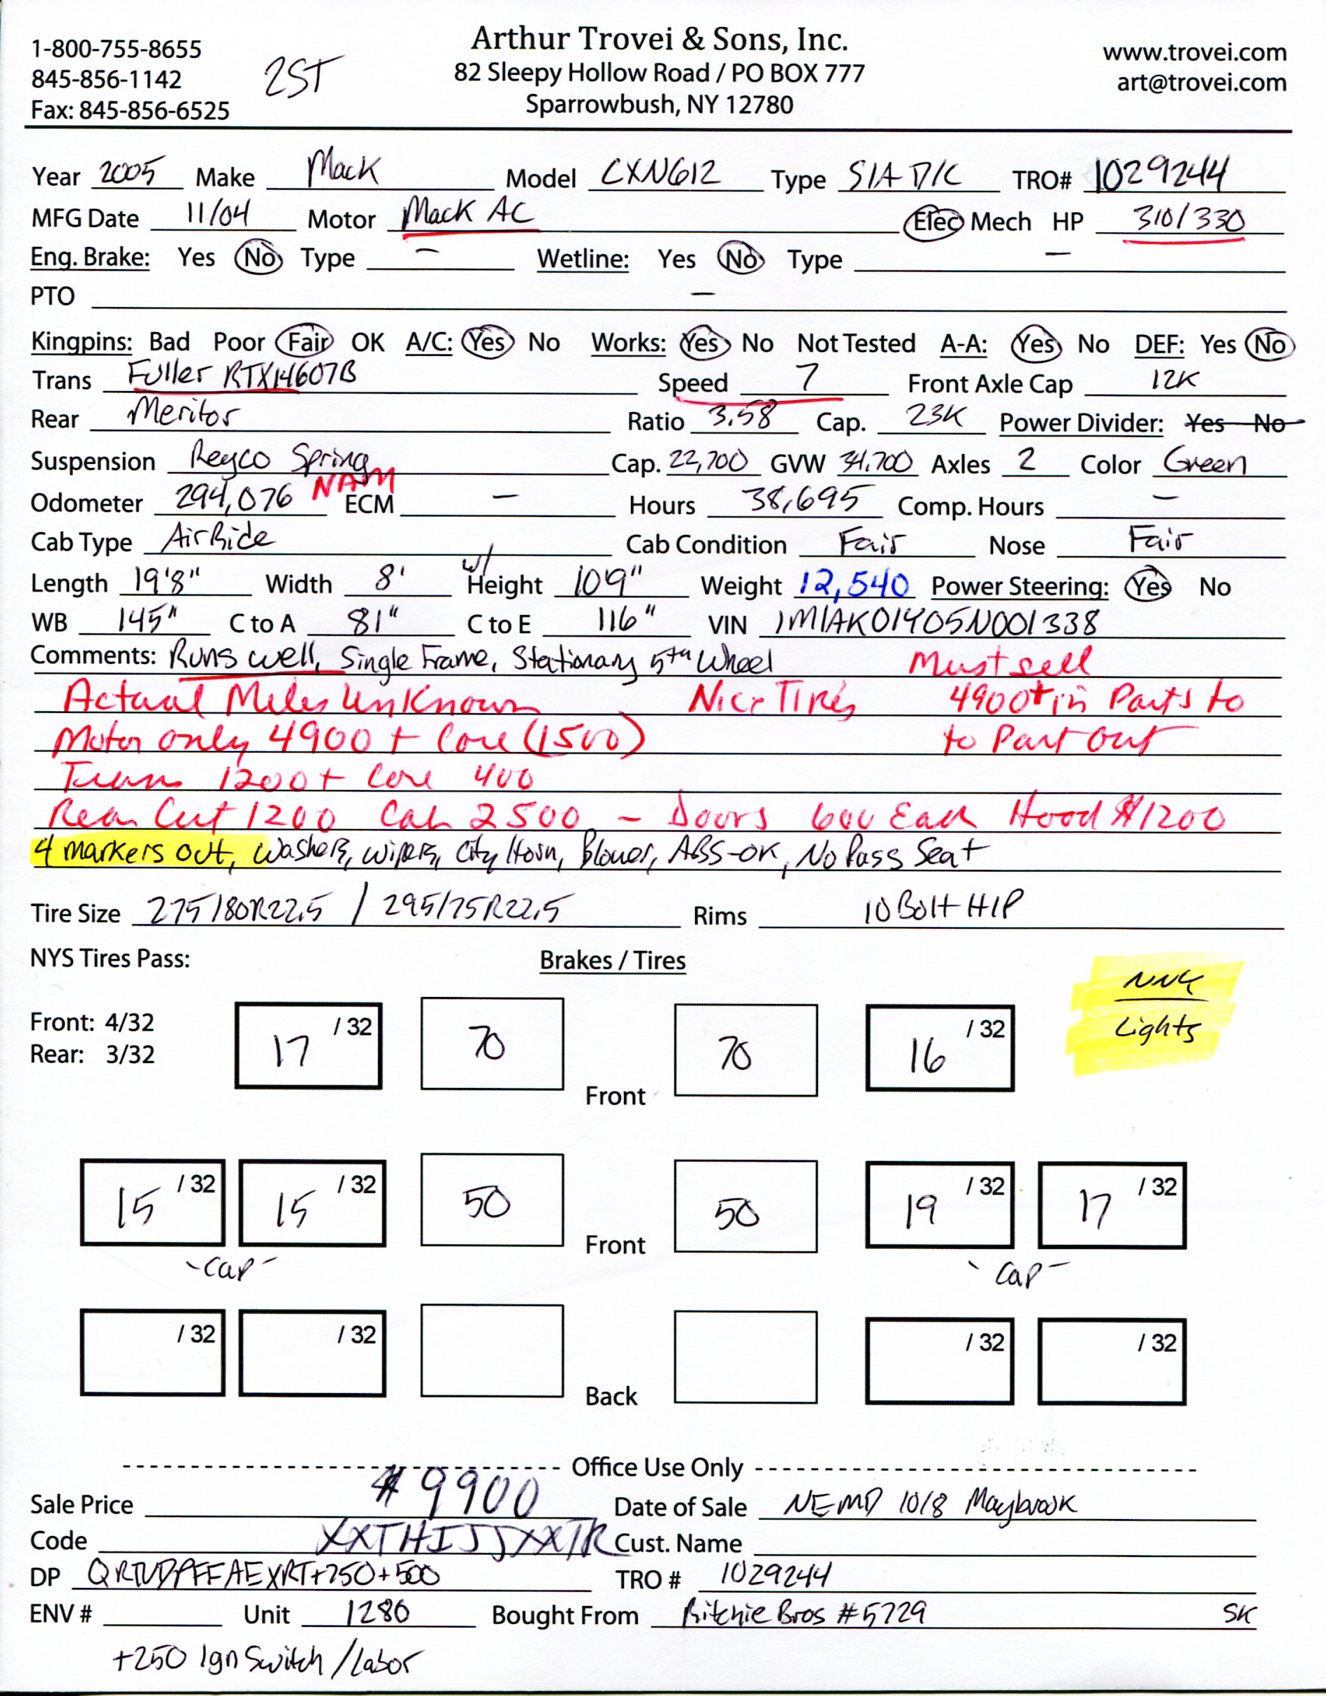 1-800-755-8655
845-856-1142
Fax: 845-856-6525
2ST
Arthur Trovei & Sons, Inc.
82 Sleepy Hollow Road / PO BOX 777
Sparrowbush, NY 12780
www.trovei.com
art@trovei.com
Year 2005 Make Mack Model CXN612 Type S/A D/C TRO# 1029244
MFG Date 11/04 Motor Mack AC Elec Mech HP 310/330
Eng. Brake: Yes No Type — Wetline: Yes No Type —
PTO —
Kingpins: Bad Poor Fair OK A/C: Yes No Works: Yes No Not Tested A-A: Yes No DEF: Yes No
Trans Fuller RTX14607B Speed 7 Front Axle Cap 12K
Rear Meritor Ratio 3.58 Cap. 23K Power Divider: Yes No
Suspension Reyco Spring Cap. 22,700 GVW 34,700 Axles 2 Color Green
Odometer 294,076 NAM ECM — Hours 38,695 Comp. Hours —
Cab Type AirRide Cab Condition Fair Nose Fair
Length 19'8" Width 8' w/ Height 10'9" Weight 12,540 Power Steering: Yes No
WB 145" C to A 81" C to E 116" VIN 1M1AK01405N001338
Comments: Runs well, Single Frame, Stationary 5th Wheel Must sell
Actual Miles UnKnown Nice Tires 4900+ in Parts to
Motor only 4900 + Core (1500) to Part out
Trans 1200 + Core 400
Rear Cut 1200 Cab 2500 – Doors 600 Each Hood $1200
4 markers out, Washers, Wipers, City Horn, Blower, ABS-OK, No Pass Seat
Tire Size 275/80R22.5 / 295/75R22.5 Rims 10 Bolt HP
NYS Tires Pass: Brakes / Tires
NNY
Lights
Front: 4/32
Rear: 3/32
17 /32 70 Front 70 16 /32
15 /32 15 /32 50 Front 50 19 /32 17 /32
-Cap- -Cap-
/32 /32 Back /32 /32
Office Use Only
Sale Price $9900 Date of Sale NEMD 10/8 Maybrook
Code XXTHIJJXXTR Cust. Name
DP +250+500 TRO # 1029244
ENV # Unit 1280 Bought From Ritchie Bros #5729 SK
+250 Ign Switch/Labor